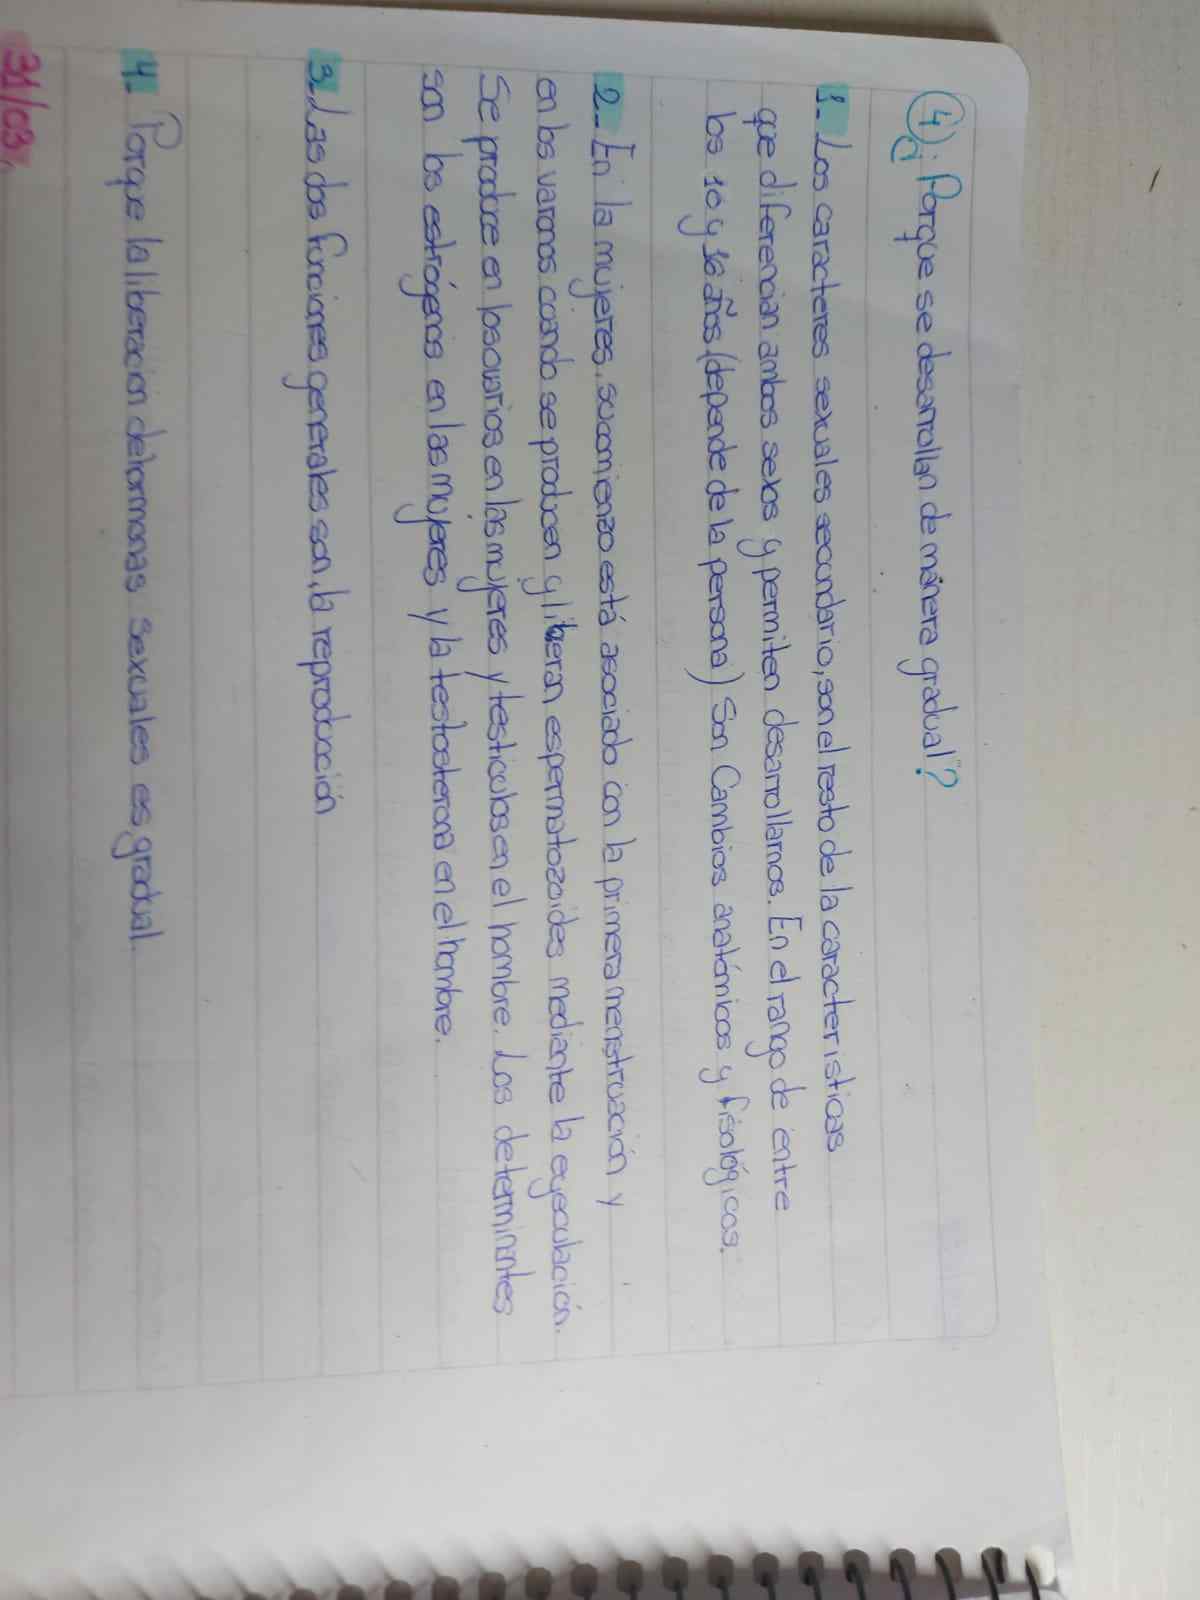 4) ¿Porque se desarrollan de manera gradual?
1- Los caracteres sexuales secundario, son el resto de la caracteristicas
que diferencian ambos sexos y permiten desarrollarnos. En el rango de entre
los 10 y 16 años (depende de la persona) Son Cambios anatómicos y fisológicos.
2- En la mujeres, su comienzo está asociado con la primera menstruación y
en los varones cuando se producen y liberan espermatozoides mediante la eyaculación.
Se produce en los ovarios en las mujeres y testiculos en el hombre. Los determinantes
son los estrógenos en las mujeres y la testosterona en el hombre.
3- Las dos funciones generales son, la reproducción
4- Porque la liberación de hormonas sexuales es gradual.
31/03,